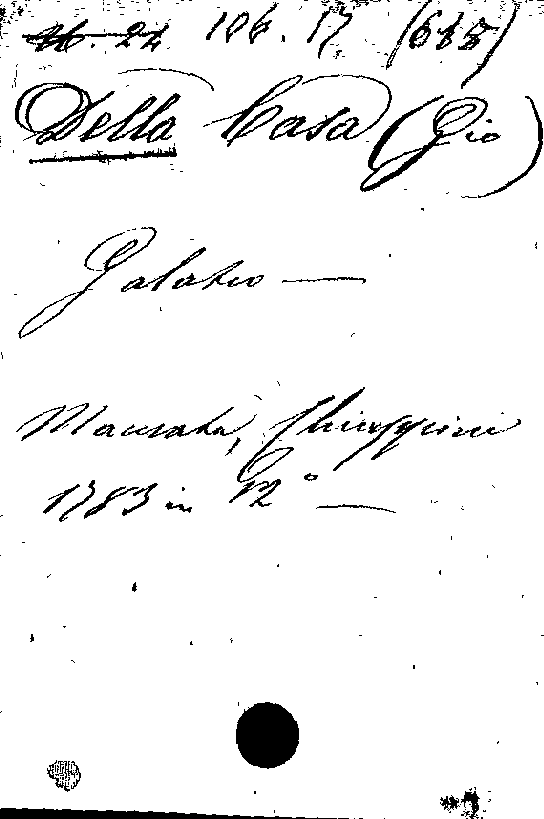 106. 17 (615)
Della Casa (Gio)
Galateo —
Macerata, Chiappini
1783 in 12° —